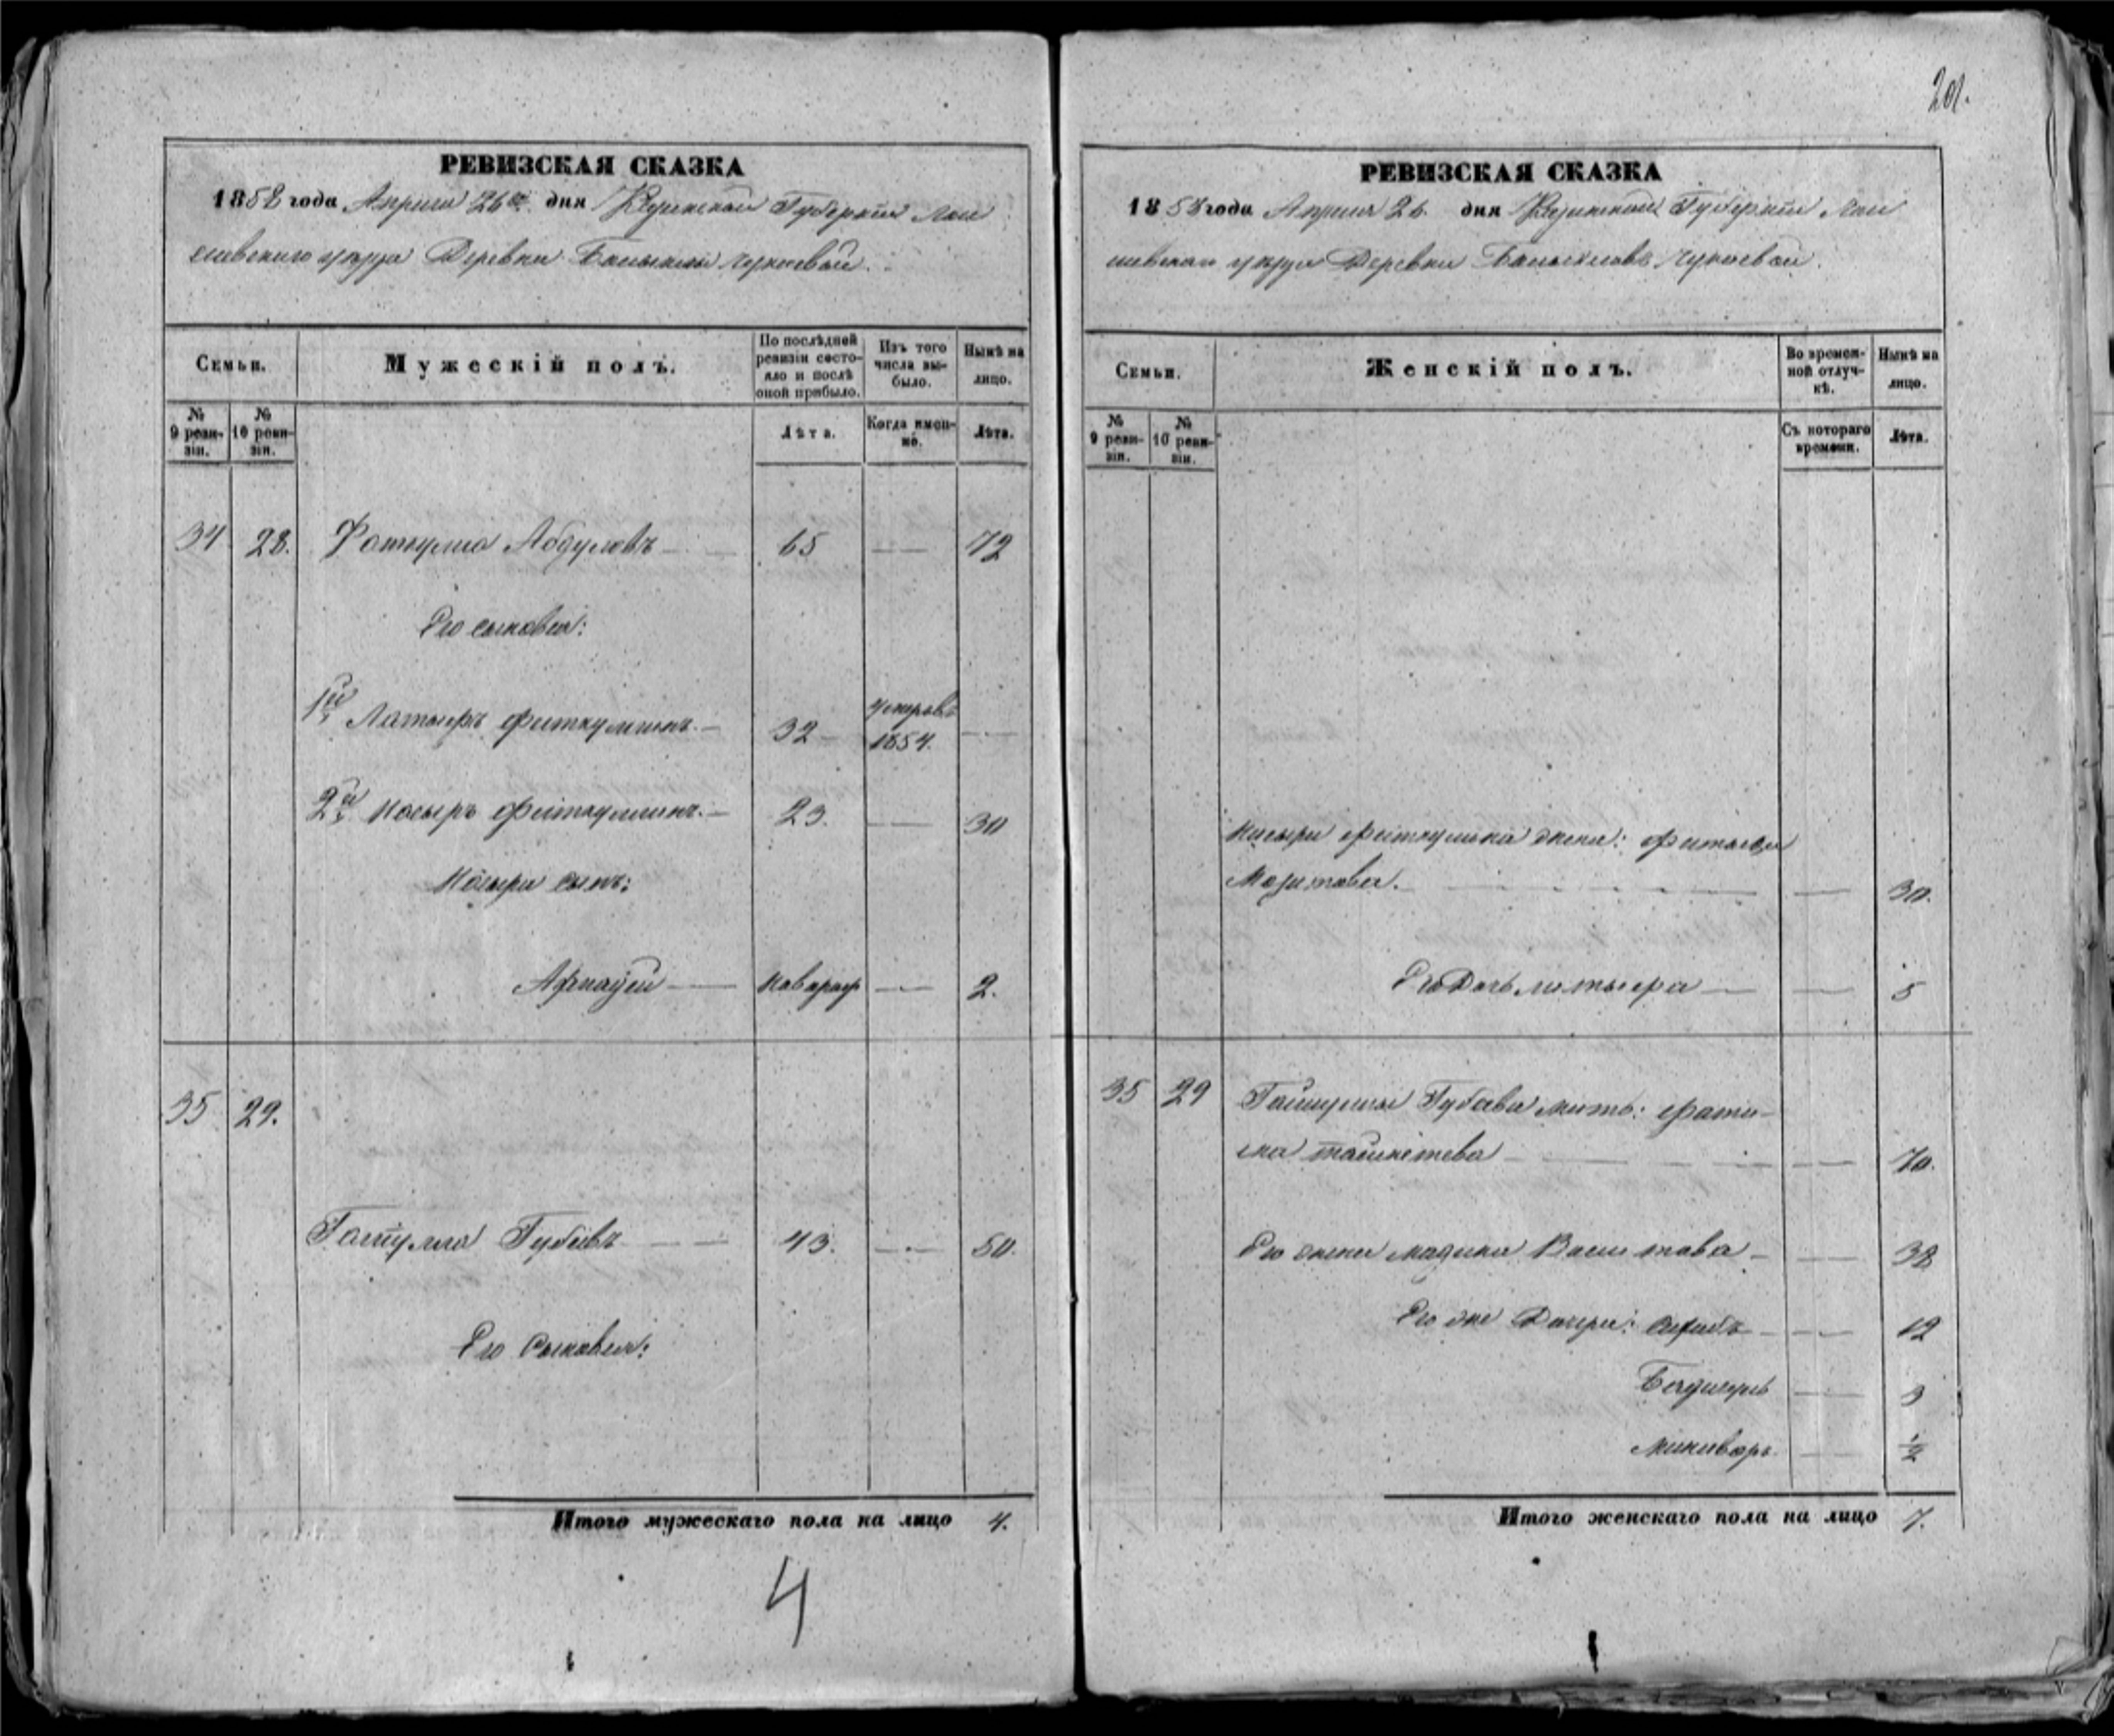 201.
РЕВИЗСКАЯ СКАЗКА
1858 года Апреля 26го дня Казанской Губернiи Лаи
шевскаго уѣзда Деревни
Семьи.
Мужескiй полъ.
По послѣдней
ревизiи состо-
яло и послѣ
оной прибыло.
Изъ того
числа вы-
было.
Нынѣ на
лицо.
№
9 реви-
зiи.
№
10 реви-
зiи.
Лѣта.
Когда имен-
но.
Лѣта.
34 28. Фаткулла Абдуловъ 65 — 72
Его сыновья:
1й Фаткуллинъ 32 умеръ въ
1854. —
2й Насыръ Фаткуллинъ 23. — 30
Насыра сынъ:
новорож — 2.
35 29.
Губаевъ 43. — 50.
Его сыновья:
Итого мужескаго пола на лицо 4.
4
РЕВИЗСКАЯ СКАЗКА
1858 года Апреля 26. дня Казанской Губернiи Лаи
шевскаго уѣзда Деревни
Семьи.
Женскiй полъ.
Во времен-
ной отлуч-
кѣ.
Нынѣ на
лицо.
№
9 реви-
зiи.
№
10 реви-
зiи.
Съ котораго
времени.
Лѣта.
Насыра Фаткуллина жена:
— 30.
Его дочь — 5
35 29 Губаева мать: Фати-
ма — 70.
Его жена Мадина — 38
Его же дочери: — 12
— 3
Минивару — ½
Итого женскаго пола на лицо 7.